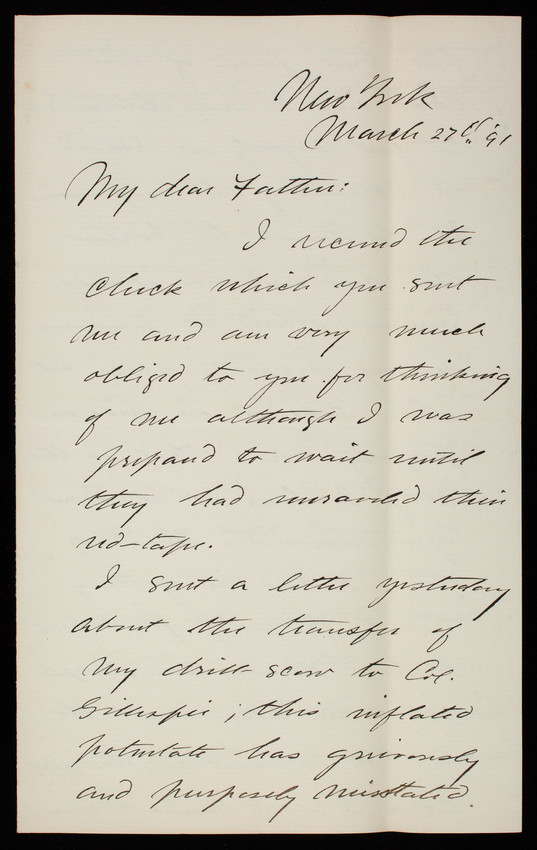 New York
March 27th '91
My dear Father:
I received the
check which you sent
me and am very much
obliged to you for thinking
of me although I was
prepared to wait until
they had unraveled their
red-tape.
I sent a letter yesterday
about the transfer of
my drill scow to Col.
Gillespie; this inflated
potentate has grievously
and purposely misstated